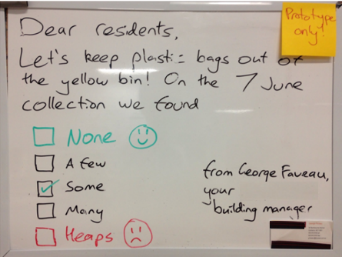 Dear residents,
Prototype
only!
Let's keep plastic bags out of
the yellow bin! On the 7 June
collection we found
None
A few
Some
Many
Heaps
from George Faveau,
your
building manager